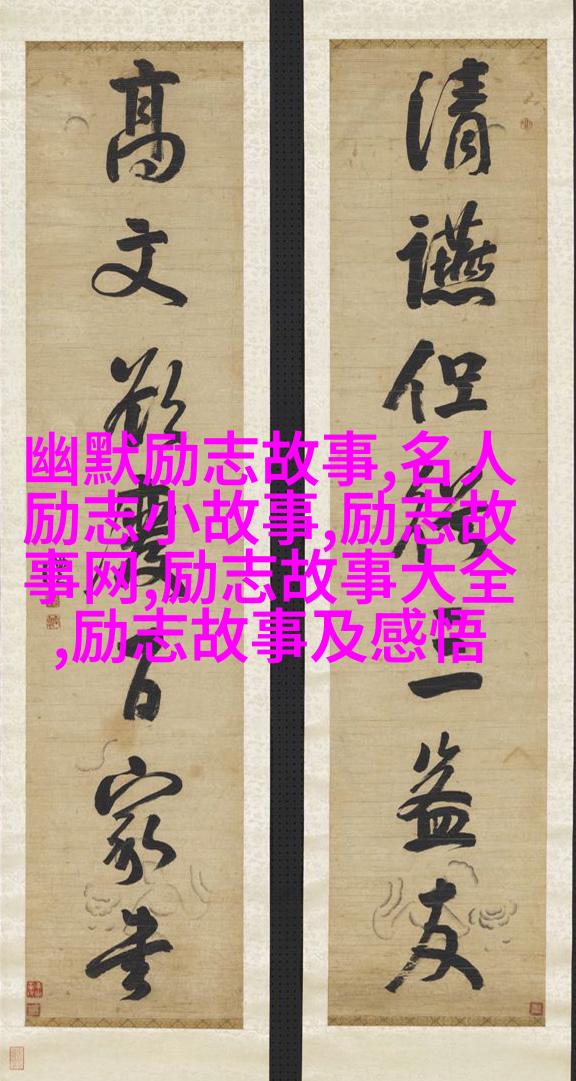 清讌但三益友
高文欲百家書
幽默励志故事,名人
励志小故事,励志故
事网,励志故事大全
,励志故事及感悟